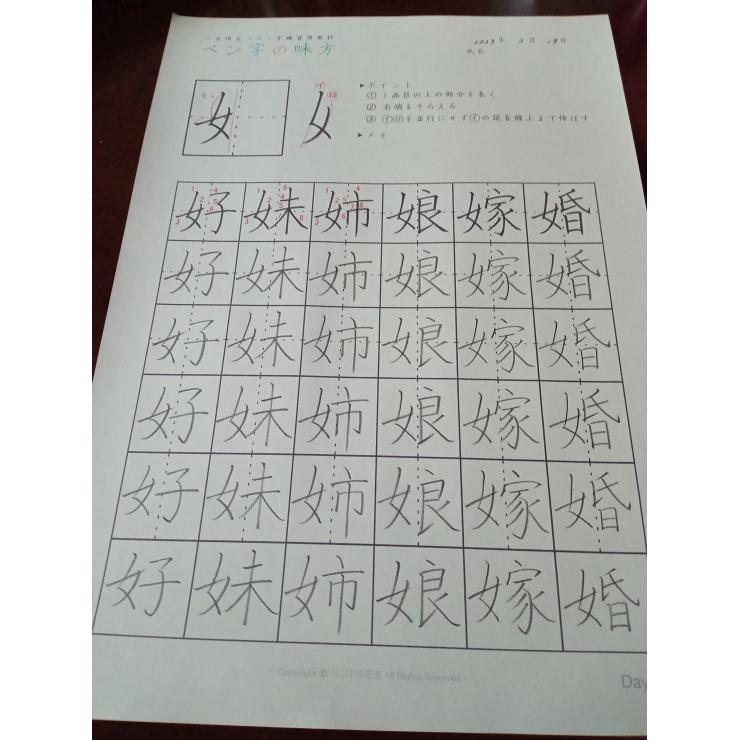 ペン字の味方
2023年 2月 19日
氏名
女 女
▶ポイント
① 1画目の上の部分を長く
② 右端をそろえる
③ ㋑㋺を並行にせず㋑の延長線上まで伸ばす
▶メモ
好 妹 姉 娘 嫁 婚
好 妹 姉 娘 嫁 婚
好 妹 姉 娘 嫁 婚
好 妹 姉 娘 嫁 婚
好 妹 姉 娘 嫁 婚
好 妹 姉 娘 嫁 婚
Copyright © ペン字の花道 All Rights Reserved.
Day